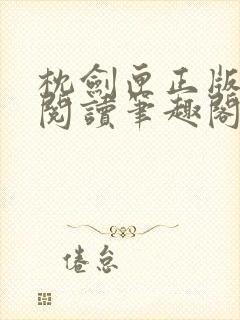 枕劍匣正版
閱讀筆趣閣
倦怠